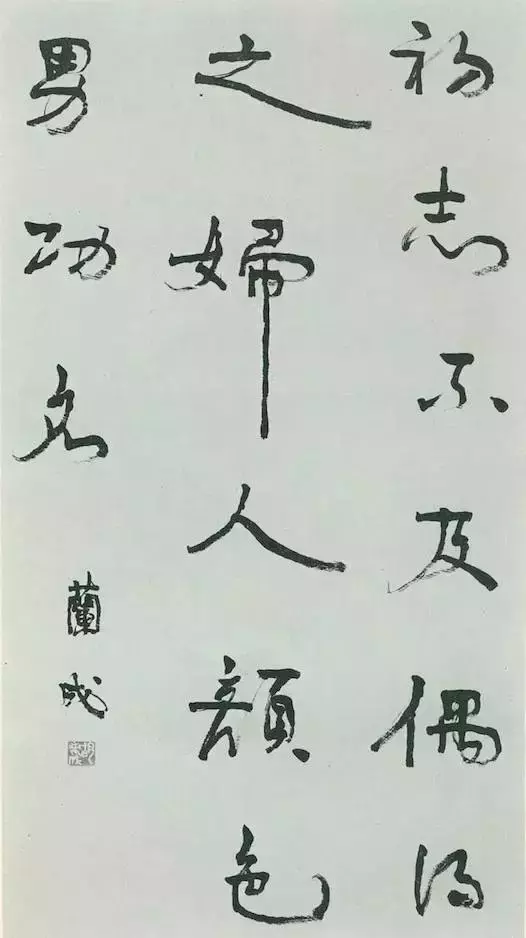 初志不及偶得
之婦人顔色
男功名
蘭成